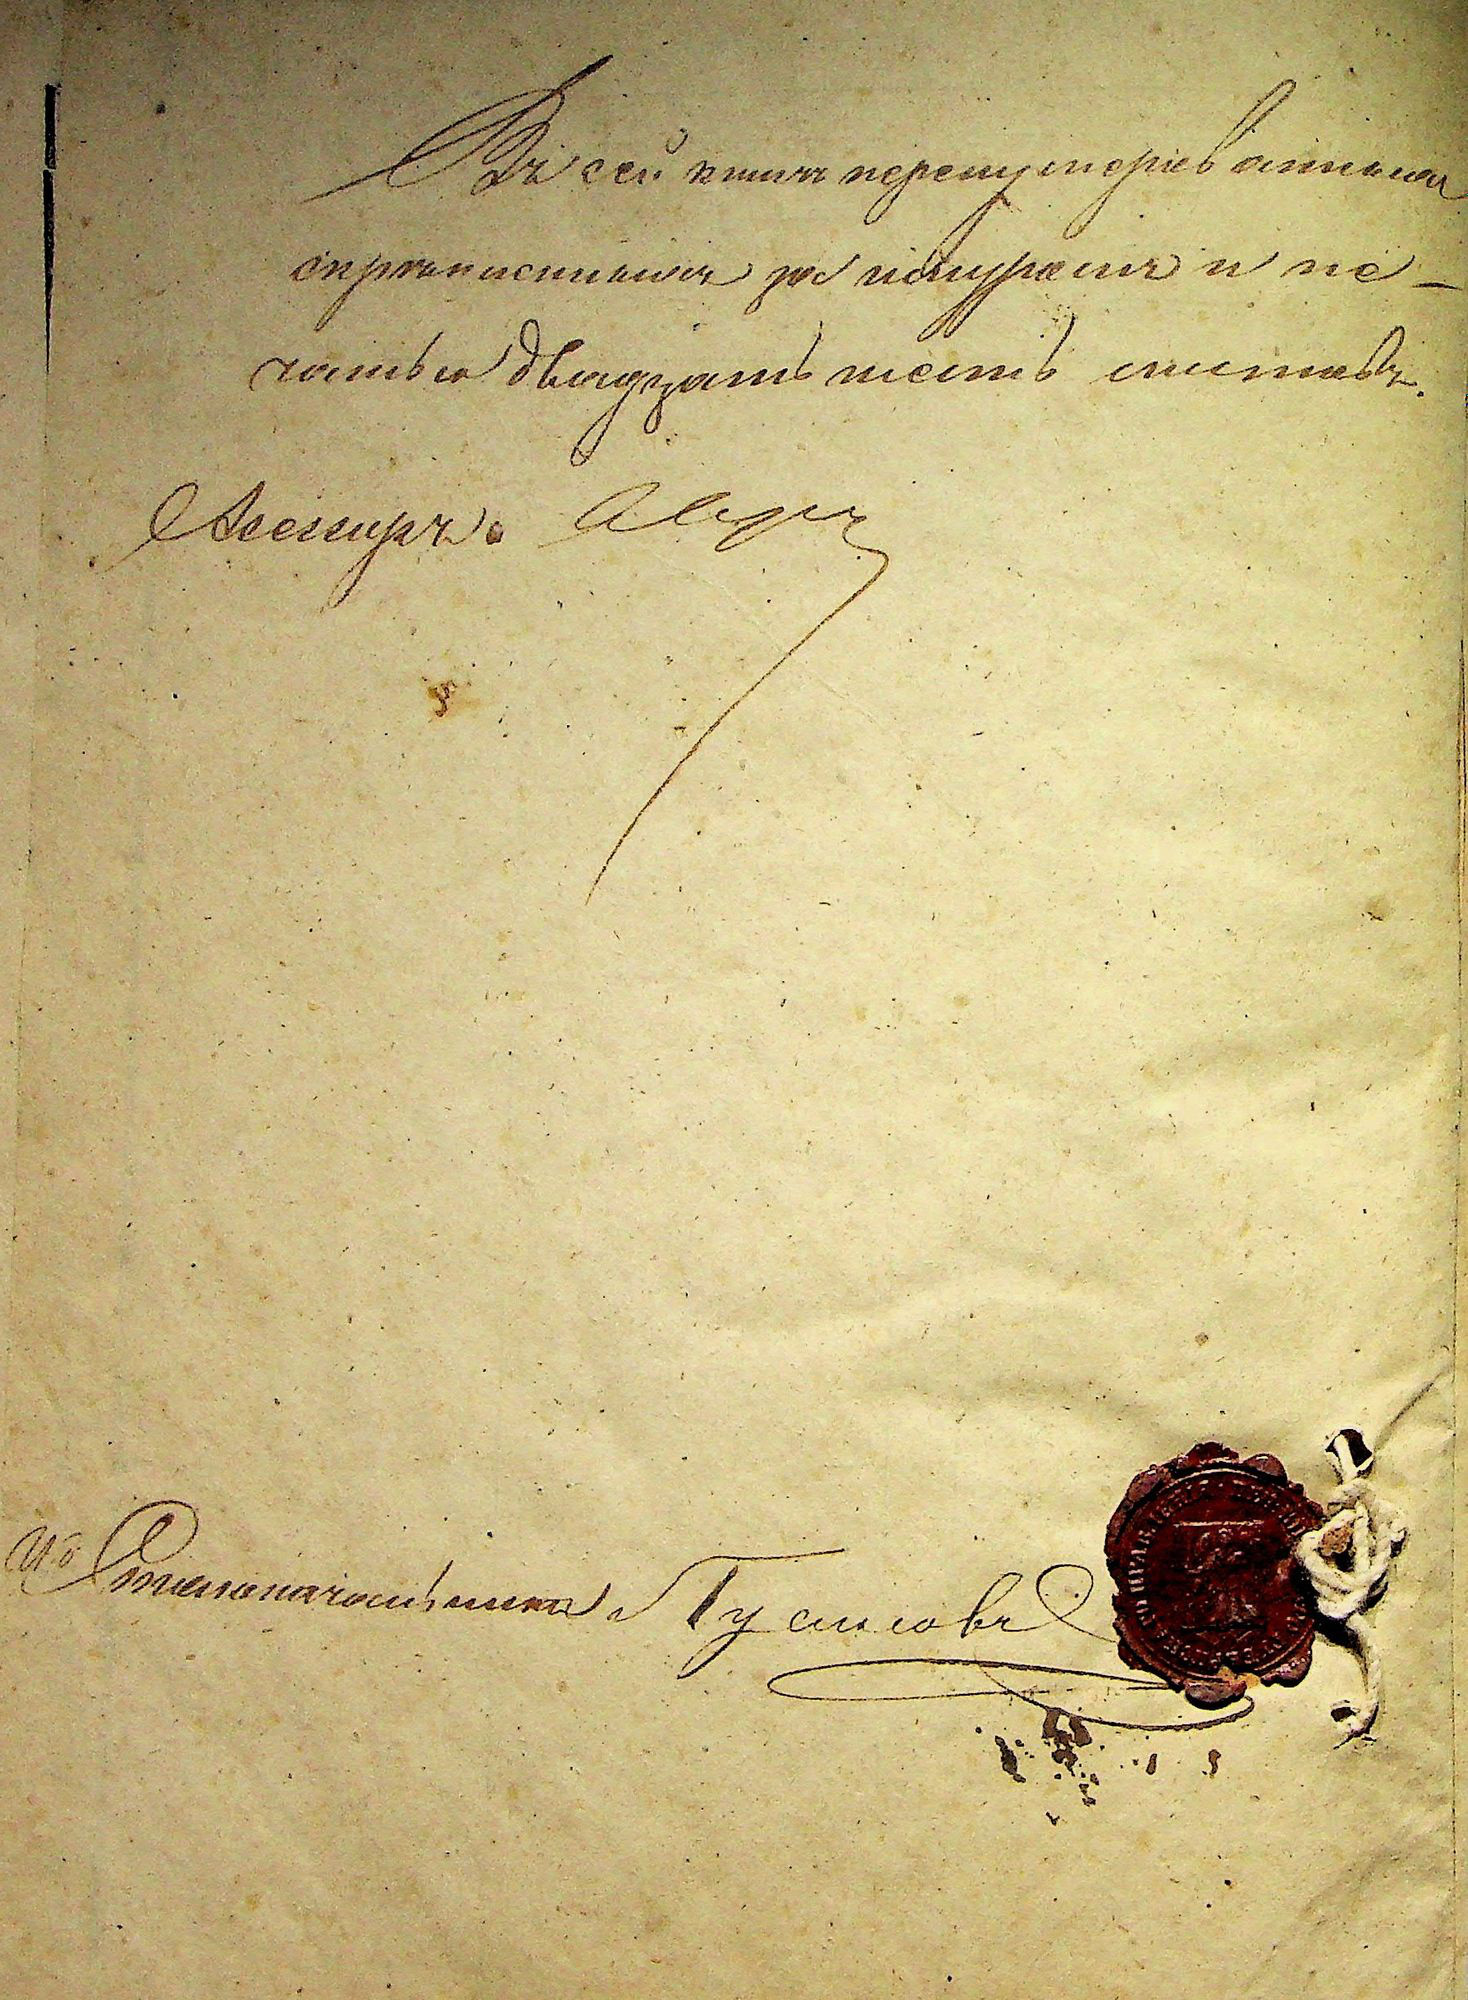 Въ сей книгѣ перенумерованныхъ
скрѣпленныхъ за шнуромъ и пе-
чатью двадцать шесть листовъ.
Ассесоръ
И. о Столоначальника Гусаковъ